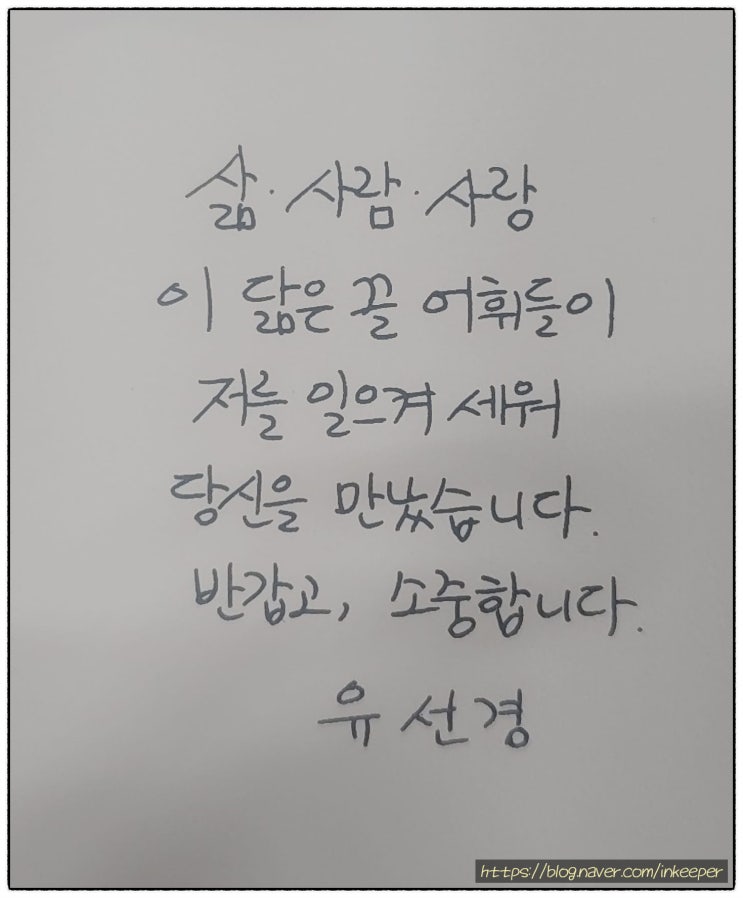 삶·사람·사랑
이 닮은 꼴 어휘들이
저를 일으켜 세워
당신을 만났습니다.
반갑고, 소중합니다.
유선경
https://blog.naver.com/inkeeper